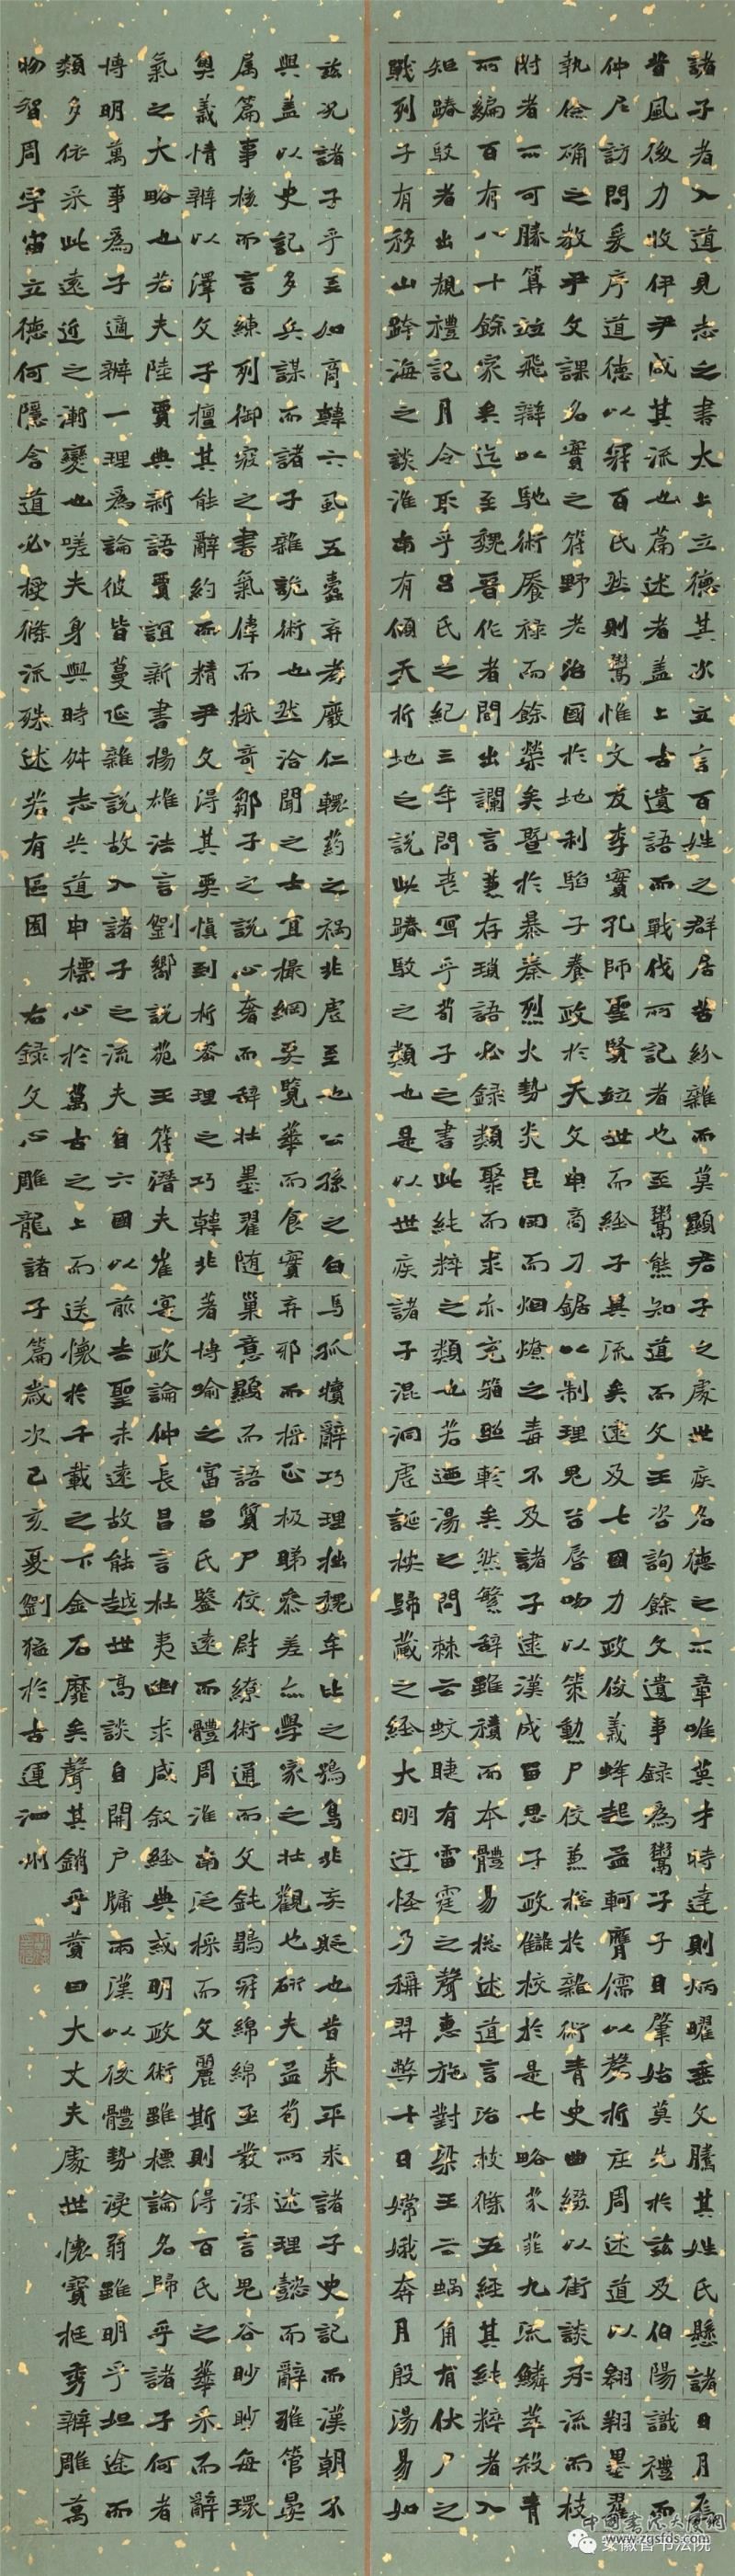 諸子者入道見志之書太上立德其次立言百姓之群居苦紛雜而莫顯君子之處世疾名德之不章唯英才時達則炳曜垂文騰其姓氏懸諸日月焉
昔風後力收伊尹咸其流也篇述者盖上古遺語而戰伐所記者也至鬻熊知道而文王咨詢餘文遺事録為鬻子子目肇始莫先於茲及伯陽識禮而
仲尼訪問爰序道德以冠百氏然則鬻惟文友李實孔師聖賢並世而經子異流矣逮及七國力政俊義蜂起孟軻膺儒以磬折莊周述道以翱翔墨翟
執儉确之教尹文課名實之符野老治國於地利騶子養政於天文申商刀鋸以制理鬼谷唇吻以策勳尸佼兼總於雜術青史曲綴以街談承流而枝
附者不可勝算並飛辯以馳術饜祿而餘榮矣暨於暴秦烈火勢炎昆岡而烟燎之毒不及諸子逮漢成留思子政讎校於是七略芬菲九流鱗萃殺青
所編百有八十餘家矣迄至魏晉作者間出讕言兼存瑣語必録類聚而求亦充箱照軫矣然繁辞雖積而本體易總述道言治枝條五經其純粹者入
矩踳駁者出規禮記月令取乎吕氏之紀三年問喪寫乎荀子之書此純粹之類也若迺湯之問棘云蚊睫有雷霆之聲惠施對梁王云蝸角有伏尸之
戰列子有移山跨海之談淮南有傾天折地之說此踳駁之類也是以世疾諸子混洞虛誕按歸藏之經大明迂怪乃稱羿弊十日嫦娥奔月殷湯易如
茲况諸子乎至如商韓六虱五蠹弃孝廢仁轘葯之禍非虛至也公孫之白馬孤犢辭巧理拙魏牟比之鴞鳥非妄貶也昔東平求諸子史記而漢朝不
與盖以史記多兵謀而諸子雜詭術也然洽聞之士宜撮綱要覽華而食實弃邪而採正极睇參差亦學家之壯觀也研夫孟荀所述理懿而辭雅管晏
属篇事核而言練列御寇之書氣偉而採奇鄒子之說心奢而辞壯墨翟随巢意顯而語質尸佼尉繚術通而文鈍鶡冠綿綿亟發深言鬼谷眇眇每環
奧義情辨以澤文子擅其能辭約而精尹文得其要慎到析密理之巧韓非著博喻之富吕氏鑒遠而體周淮南泛採而文麗斯則得百氏之華采而辭
氣之大略也若夫陸賈典新語賈誼新書楊雄法言劉嚮說苑王符潛夫崔寔政論仲長昌言杜夷幽求咸叙經典或明政術雖標論名歸乎諸子何者
博明萬事為子適辨一理為論彼皆蔓延雜說故入諸子之流夫自六國以前去聖未遠故能越世高談自開户牖兩漢以後體勢浸弱雖明乎坦途而
類多依采此遠近之漸變也嗟夫身與時舛志共道申標心於萬古之上而送懷於千載之下金石靡矣聲其銷乎贊曰大丈夫處世懷寶挺秀辨雕萬
物智周宇宙立德何隱含道必授條流殊述若有區囿 右録文心雕龍諸子篇歲次己亥夏劉猛於古運泗州
中国书法大厦网
www.zgsfds.com
安徽省书法院